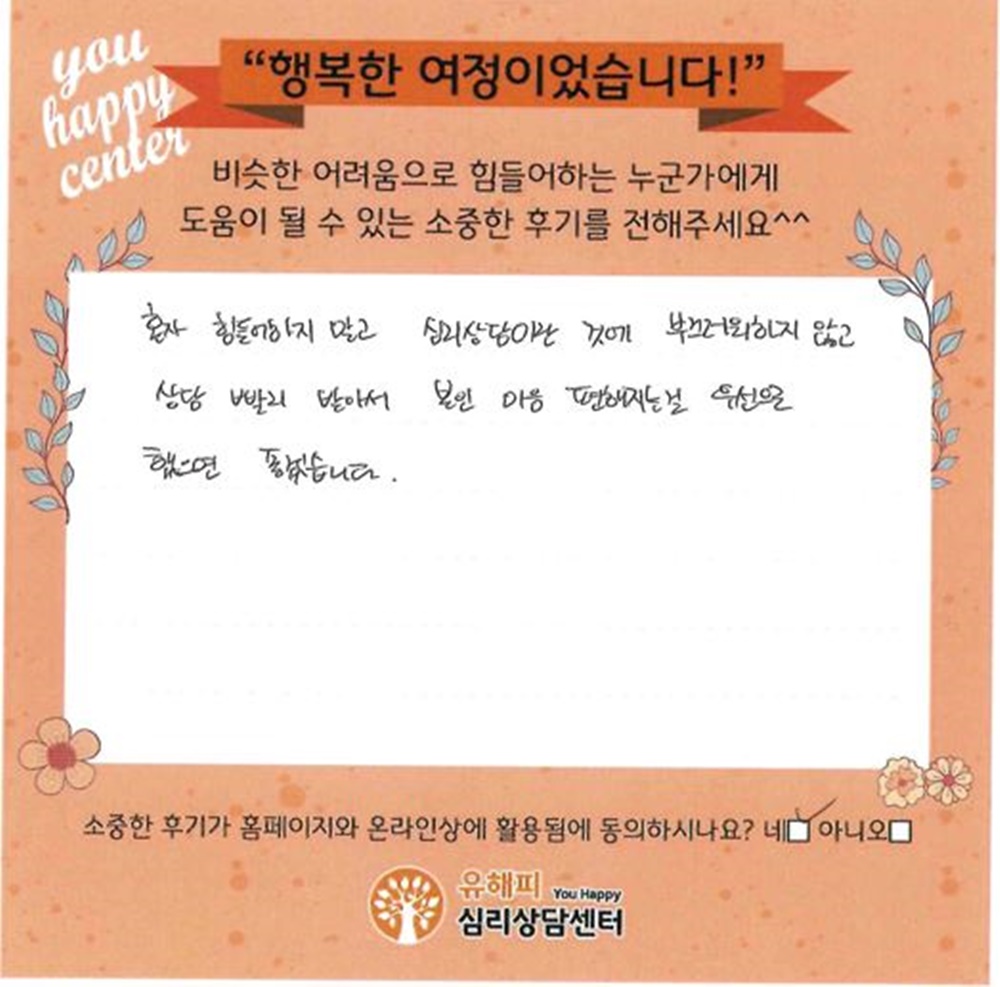 you
happy
center
“행복한 여정이었습니다!”
비슷한 어려움으로 힘들어하는 누군가에게
도움이 될 수 있는 소중한 후기를 전해주세요^^
혼자 힘들어하지 말고 심리상담이란 것에 부끄러워하지 않고
상담 빨리 받아서 본인 마음 편해지는걸 우선으로
했으면 좋겠습니다.
소중한 후기가 홈페이지와 온라인상에 활용됨에 동의하시나요? 네☑ 아니오□
유해피 You Happy
심리상담센터